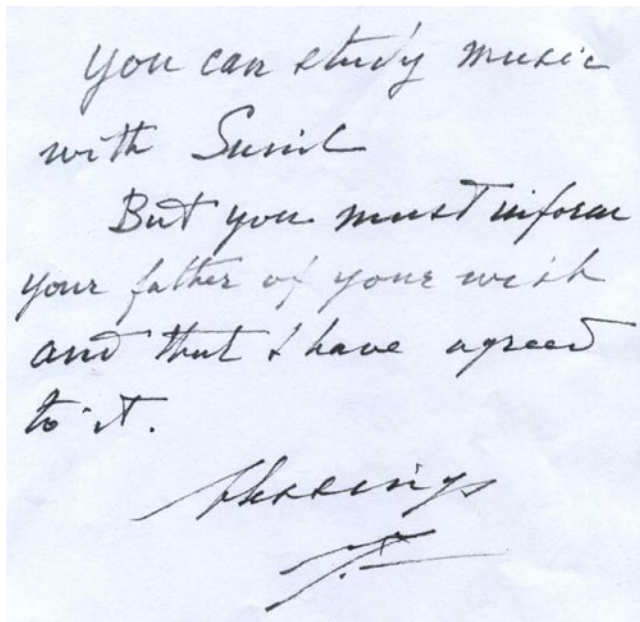 you can study music
with Sunil
But you must inform
your father of your wish
and that I have agreed
to it.
blessings